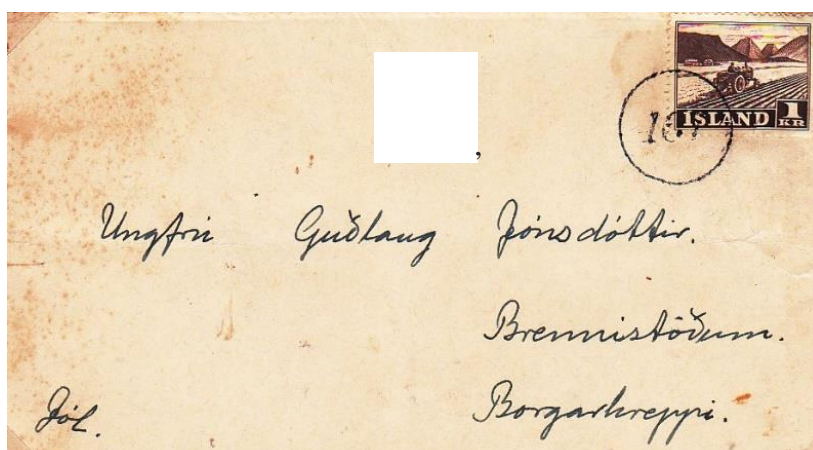 ÍSLAND 1 KR
Ungfrú Guðlaug Jónsdóttir.
Brennistöðum.
Borgarhreppi.
Jól.